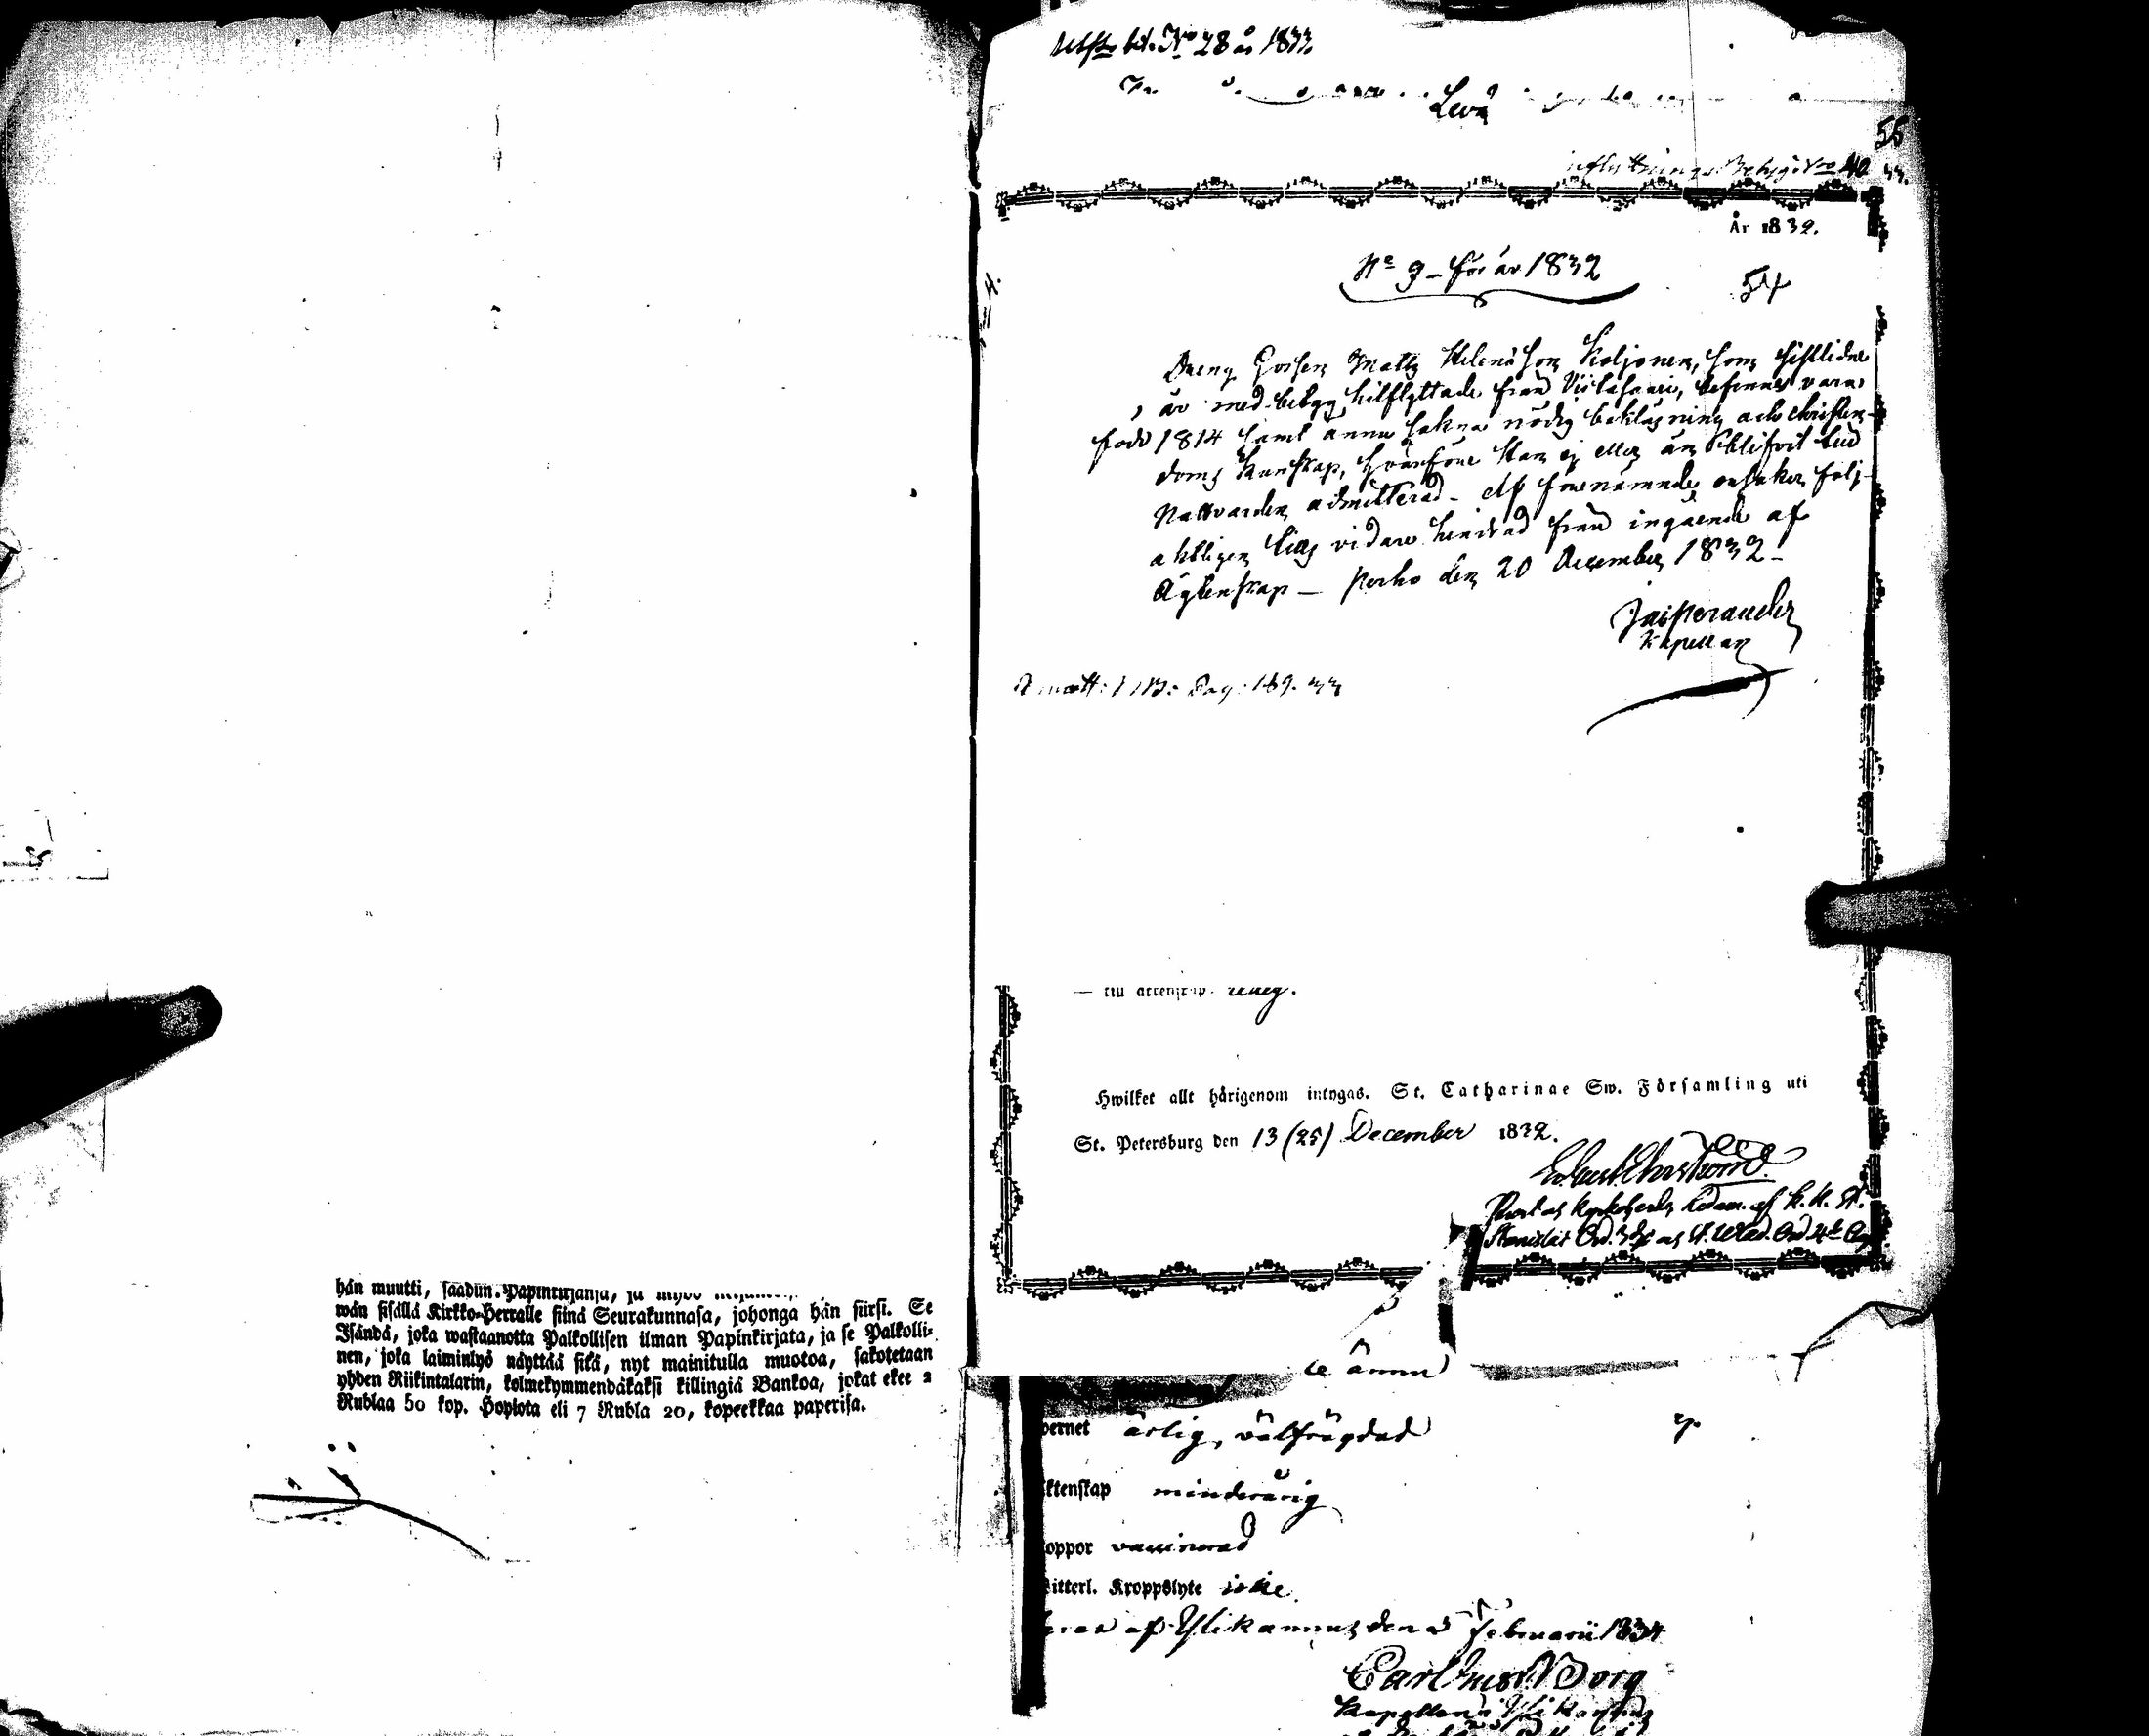 hän muutti, saadun Papinkirjansa, ja myös
wän sisällä Kirkko-Herralle siinä Seurakunnasa, johonga hän siirsi. Se
Isändä, joka wastaanotta Palkollisen ilman Papinkirjata, ja se Palkolli-
nen, joka laiminlyö näyttää sitä, nyt mainitulla muotoa, sakotetaan
yhden Riikintalarin, kolmekymmendäkaksi killingiä Bankoa, jokat ekee 2
Rublaa 50 kop. Hopiota eli 7 Rubla 20, kopeekkaa paperisa.
bil. No 28 år 1833.
55
År 1832.
No 9 - för år 1832
54
Dreng Gossen Matts Helenason Koljonen, som sistlidne
år med betyg hitflyttade från Viitasaari, befinnes vara
född 1814 samt ännu sakna nödig beklädning och christen-
doms kunskap, hvarföre Han ej eller än blifvit till
Nattvarden admitterad. Af förenämnde orsaker följ-
aktligen tills vidare hindrad från ingående af
Ägtenskap — Perho den 20 December 1832 -
Kapellan
Pag: 169. 33
— till äktenskap: ledig.
Hwilket allt härigenom intygas. St. Catharinae Sw. Församling uti
St. Petersburg den 13 (25) December 1832.
Prost och Kyrkoherde, af K. K. St.
Stanislai Ord. och St. Wlad. Ord. 4de
ännu
vernet ärlig, välfrägdad
ktenskap minderårig
oppor vaccinerad
itterl. Kroppslyte icke
af Ylikannus den Februarii 1834
Carl Borg
Kapellan i Ylikannus